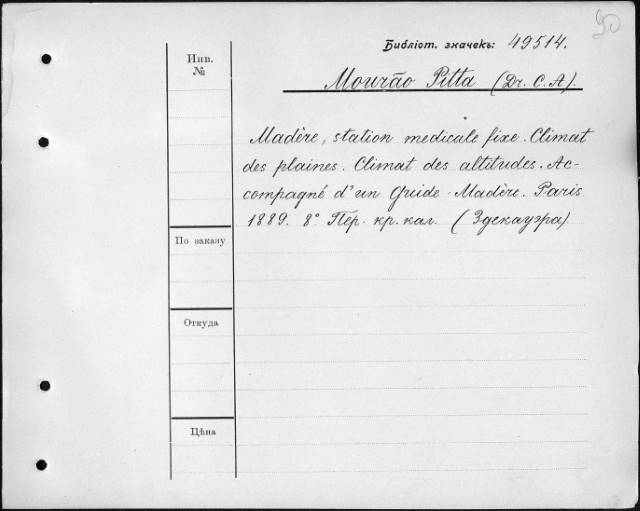 90
Библіот. значекъ: 49514.
Инв.
№
Mourão Pitta (Dr. C. A).
Madère, station medicale fixe. Climat
des plaines. Climat des altitudes. Ac-
compagné d'un Guide-Madère. Paris.
1889. 8° Пер. кр. кал. (Здекауэра)
По заказу
Откуда
Цѣна